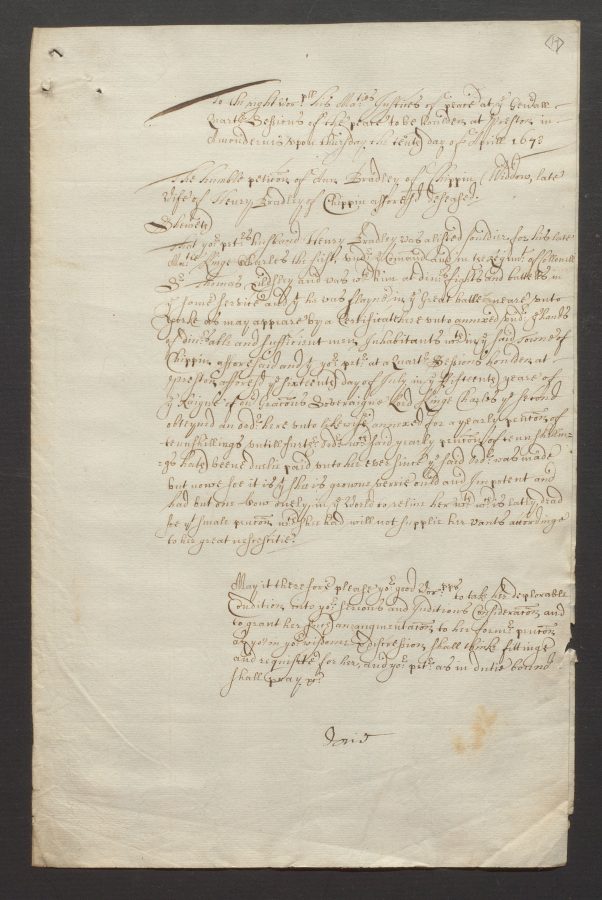 To the right wor:pll his Maties Justices of peace at ye Genall
Quartr Sessions of the peace to be houlden at Preston in
Amoundernis upon thursday the tenth day of Aprill 1678
The humble peticon of Ann Bradley of Chippin Widdow, late
Wife of Henry Bradley of Chippin aforesd deceased.
Sheweth
That yor petrs husband Henry Bradley was a listed souldier for his late
Matie Kinge Charles the first, undr ye Comand and in ye regimt of Collonell
Sr Thomas Tildsley and was wth him at divrs fights and battells in
ye some service and yt he was slayne in ye Great battle neare unto
Yorke as may appeare by a Certificate here unto annexed undr ye hands
of divrs able and sufficient men Inhabitants wthin ye said towne of
Chippin aforesaid and yt yor petr at a Quartr Sessions houlden at
Preston aforesd ye sixteenth day of July in ye fifteenth yeare of
ye Reigne of our Gracious Soveraigne Lord Kinge Charles ye second
obteyned an ordr here unto likewise annexed for a yearly pencon of
tenn shillings untill furthr ordr wch said yearly pencon of tenn shillin-
gs hath beene dulie paid unto her ever since ye said ordr was made
but nowe soe it is yt shee is growne verrie ould and Impotent and
had but one Cow onely in ye World to relive her wth wch is lately dead
soe yt small pencon wch shee had will not supplie her wants accordinge
to her great nescescities
May it therefore please yor good Worpps to take her deplorable
Condition into yor serious and Juditious Consideracon and
to grant her such an augmentacon to her former pencon
as yor in yor wisdome & discression shall thinke fittinge
and requisite for her, and yor petr as in dutie bound
shall pray &c